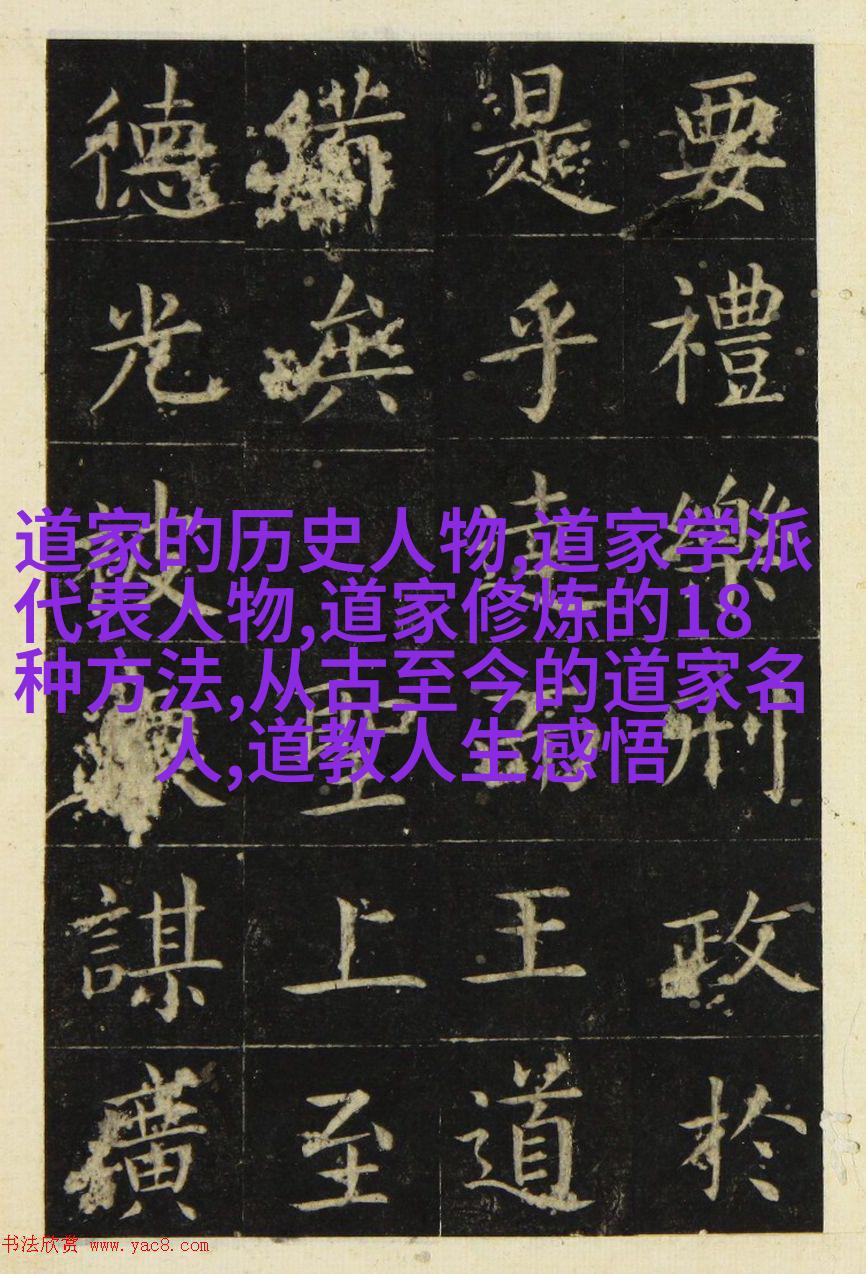 道家的历史人物,道家学派
代表人物,道家修炼的18
种方法,从古至今的道家名
人,道教人生感悟
要禮樂刑政於
是乎王道
聖上至
德光被謀廣
书法欣赏 www.yac8.com